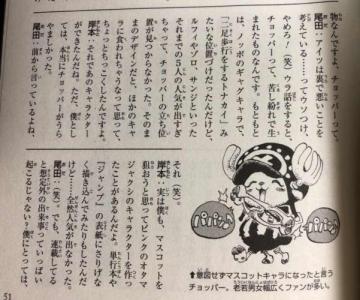 物なんですよ、チョッパーって。
尾田:アイツは裏で悪いことを
考えている……ってウソつけ、
やめろ!(笑)ウラ話をすると、
チョッパーって、苦し紛れで生
まれたものなんです。もともと
は、ノッポのギャグキャラで、
「二足歩行をするトナカイ」み
たいな位置づけだったんだけど、
ルフィやゾロ、サンジといった
それまでの5人の人気が出すぎ
ちゃって、チョッパーの立ち位
置が見つからなかった。そのま
まのデザインだと、ほかのキャ
ラに食われちゃうなって思って、
ちょっとちっこくしたんですよ。
岸本:それであのキャラクター
ができたんだね。ただ、僕とし
ては、本当にチョッパーがうら
やましかった。
尾田:前から言っているよね、
それ(笑)。
岸本:実は僕も、マスコットを
狙おうと思ってピンクのオタマ
ジャクシのキャラクターを作っ
たことがあるんだよ。単行本や
『ジャンプ』の表紙にさりげな
く描き込んでみたりもしたんだ
けど……全然人気が出なかった。
尾田:(笑)。でも、連載してる
と想定外の出来事っていっぱい
起こるじゃない?僕にとっては、
パパパーン
パパパーン
⬆意図せずマスコットキャラになったと言う
チョッパー。老若男女幅広くファンが多い。
51